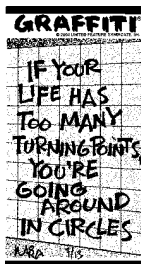 GRAFFITI®
© 2004 UNITED FEATURE SYNDICATE, INC.
IF YOUR
LIFE HAS
TOO MANY
TURNING POINTS,
YOU'RE
GOING
AROUND
IN CIRCLES
9/13